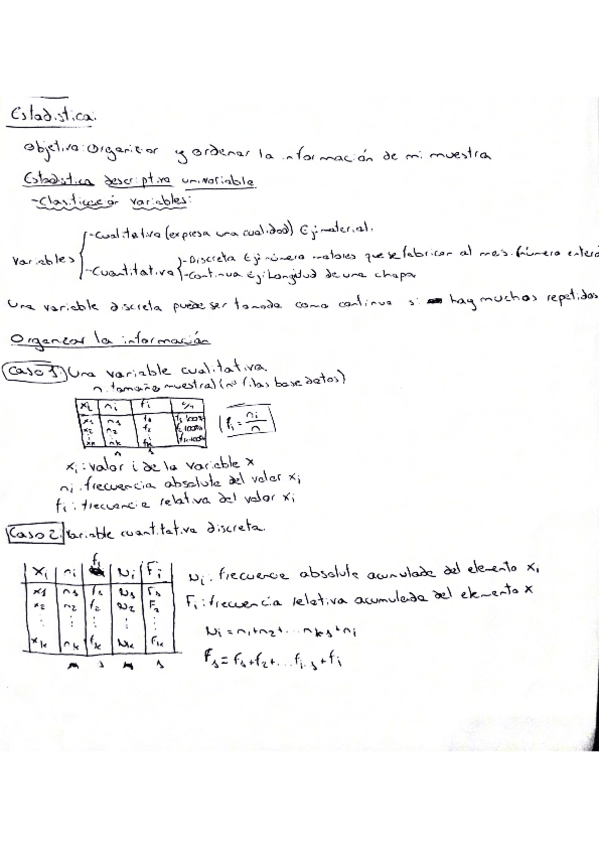 Estadistica.
Objetivo: Organizar y ordenar la información de mi muestra
Estadistica descriptiva univariable
-Clasificación variables:
-Cualitativa (expresa una cualidad) Ej: material.
Variables
-Cuantitativa
-Discreta Ej: número motores que se fabrican al mes. (número entero
-Continua Ej: Longitud de una chapa
Una variable discreta puede ser tomada como continua si hay muchos repetidos
Organizar la información
Caso 1: Una variable cualitativa.
n: tamaño muestral (nº filas base datos)
xi ni fi %
x1 n1 f1 f1·100%
x2 n2 f2 f2·100%
xk nk fk fk·100%
n 1
fi = ni/n
xi: valor i de la variable x
ni: frecuencia absoluta del valor xi
fi: frecuencia relativa del valor xi
Caso 2: Variable cuantitativa discreta.
xi ni fi Ni Fi
x1 n1 f1 N1 F1
x2 n2 f2 N2 F2
⋮ ⋮ ⋮ ⋮ ⋮
xk nk fk Nk Fk
Ni: frecuencia absoluta acumulada del elemento xi
Fi: frecuencia relativa acumulada del elemento x
Ni = n1+n2+...nk-1+ni
F1 = f1+f2+...fi-1+fi